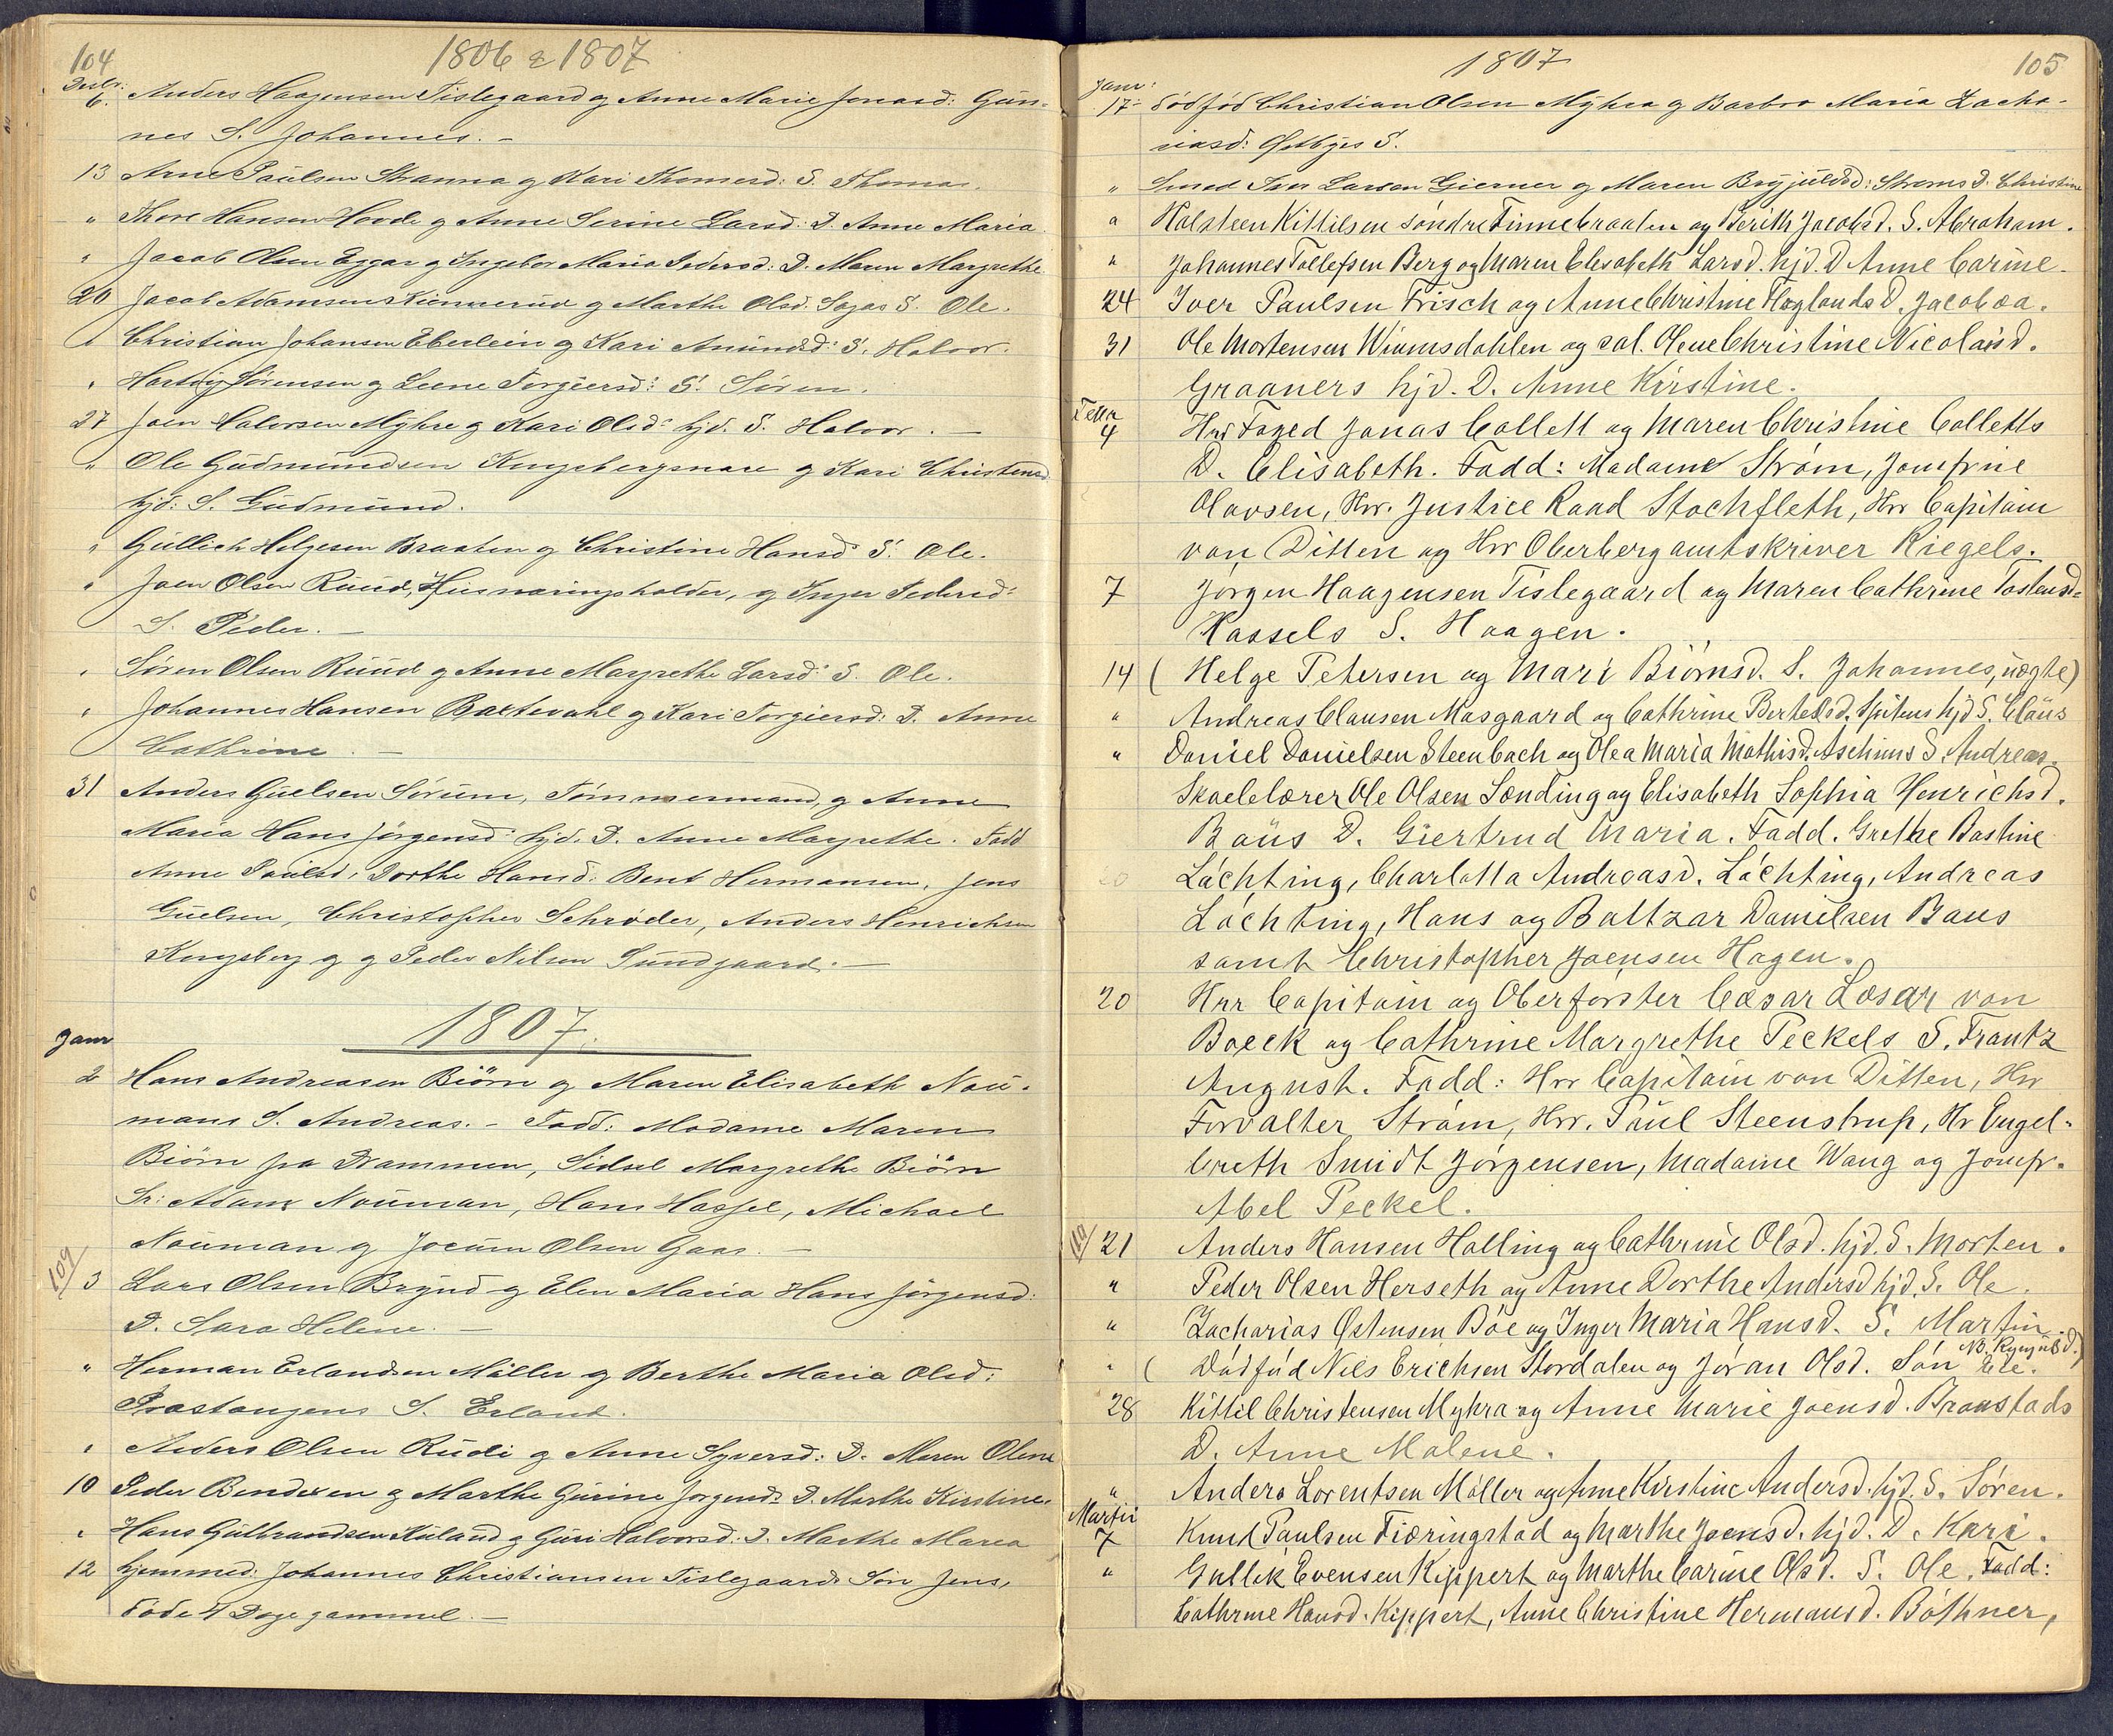 104
1806 & 1807
Decbr:
6. Anders Haagensen Tislegaard og Anne Marie Jonasd: Gun-
nes S. Johannes. –
13 Arne Paulsen Stranna og Kari Thomesd: S. Thomas.
" Thore Hansen Hovde og Anne Serine Larsd: D. Anne Maria.
" Jacob Olsen Eggar og Ingebor Maria Pedersd: D. Maren Margrethe
20 Jacob Adamsen Kiennerud og Marthe Olsd. Sagas S. Ole.
" Christian Johansen Eberlein og Kari Amundsd: S. Halvor.
" Hartvig Sørensen og Leene Torgiersd: S. Søren.
27 Joen Halvorsen Myhre og Kari Olsd: hjd. S. Halvor. –
" Ole Gudmundsen Kongsbergsnare og Kari Christensd.
hjd: S. Gudmund.
" Gullich Helgesen Braaten og Christine Hansd: S. Ole.
" Joen Olsen Ruud, Huusnæringsholder, og Inger Pedersd:
S. Peder. –
" Søren Olsen Ruud og Anne Margrethe Larsd: S. Ole.
" Johannes Hansen Battevahl og Kari Torgiersd: D. Anne
Cathrine. –
31 Anders Guelsen Sørum, Tømmermand, og Anne
Maria Hans Jørgensd: hjd. D. Anne Margrethe. Fadd
Anne Paulsd, Dorthe Hansd. Bent Hermansen, Jens
Guelsen, Christopher Schrøder, Anders Henrichsen
Kongsberg og g Peder Nilsen Sundgaard. –
1807.
Janr
2 Hans Andreasen Biörn og Maren Elisabeth Nau-
mans S. Andreas. – Fadd: Madame Maren
Biörn fra Drammen, Sidsel Margrethe Biörn
Sr: Adam Nauman, Hans Hassel, Michael
Nauman og Jocum Olsen Gaas. –
109/
3 Lars Olsen Brynd og Elen Maria Hans Jørgensd:
D. Sara Helene. –
" Herman Erlandsen Müller og Berthe Maria Olsd:
Prestangens S. Erland.
" Anders Olsen Rudi og Anne Syversd: D. Maren Olene
10 Peder Bendixen og Marthe Gurine Jørgensd: D. Marthe Kirstine.
" Hans Gulbrandsen Huland og Guri Halvorsd: D. Marthe Maria
12 hjemmed: Johannes Christiansen Tislegaards Søn Jens,
døde 4 Dage gammel. –
1807
105
Janr:
17 Dødfød Christian Olsen Myhra og Barbro Maria Zacha-
riasd: Østbyes S.
" Smed Iver Larsen Gierner og Maren Brynjuldsd: Strøms D. Christine
" Halsteen Kittilsen søndre Finnebraaten og Berith Jacobsd. S. Abraham.
" Johannes Tollefsen Berg og Maren Elisabeth Larsd. hjd. D Anne Carine.
24 Iver Paulsen Frisch og Anne Christine Høglunds D. Jacobæa.
31 Ole Mortensen Wiumsdahlen og sal. Olene Christine Nicolaisd.
Graaners hjd. D. Anne Kirstine.
Febr
4 Hr Foged Jonas Collett og Maren Christine Colletts
D. Elisabeth. Fadd: Madame Strøm, Jomfrue
Olavsen, Hrr. Justice Raad Stochfleth, Hrr Capitain
von Ditten og Hrr Oberbergamtskriver Riegels.
7 Jørgen Haagensen Tislegaard og Maren Cathrine Tostensd-
Hassels S. Haagen.
14 ( Helge Petersen og Mari Biörnsd. S. Johannes, uægte)
" Andreas Clausen Masgaard og Cathrine Bertelsd. Spitens hjd S. Claus
" Daniel Danielsen Steenbach og Olea Maria Mathisd. Aschims S. Andreas.
Skoelelærer Ole Olsen Sending og Elisabeth Sophia Henrichsd.
Baüs D. Giertrud Maria. Fadd. Grethe Bastine
Löchting, Charlotta Andreasd. Löchting, Andreas
Löchting, Hans og Baltzar Danielsen Baus
samt Christopher Joensen Hagen.
20 Hrr Capitain og Oberforster Cæsar Læsar von
Boeck og Cathrine Margrethe Peckels S. Frantz
August. Fadd: Hrr Capitain von Ditten, Hrr
Forvalter Strøm, Hrr. Paul Steenstrup, Hr Engel-
breth Smidt Jørgensen, Madame Wang og Jomfr.
Abel Peckel.
110/ 21 Anders Hansen Halling og Cathrine Olsd. hjd. S. Morten.
" Peder Olsen Herseth og Anne Dorthe Andersd hjd. S. Ole.
" Zacharias Østensen Böe og Inger Maria Hansd. S. Martin.
" ( Dödfød Nils Erichsen Stordalen og Jöran Olsd. Søn Ele.
28 Kittil Christensen Myhra og Anne Marie Joensd. Braastads
D. Anne Malene.
" Anders Lorentsen Möller og Anne Kirstine Andersd. hjd. S. Søren.
Martii
7 Knud Paulsen Fiæringstad og Marthe Joensd. hjd. D. Kari.
" Gullik Evensen Kippert og Marthe Carine Olsd. S. Ole. Fadd:
Cathrine Hansd. Kippert, Anne Christine Hermansd. Böthner,